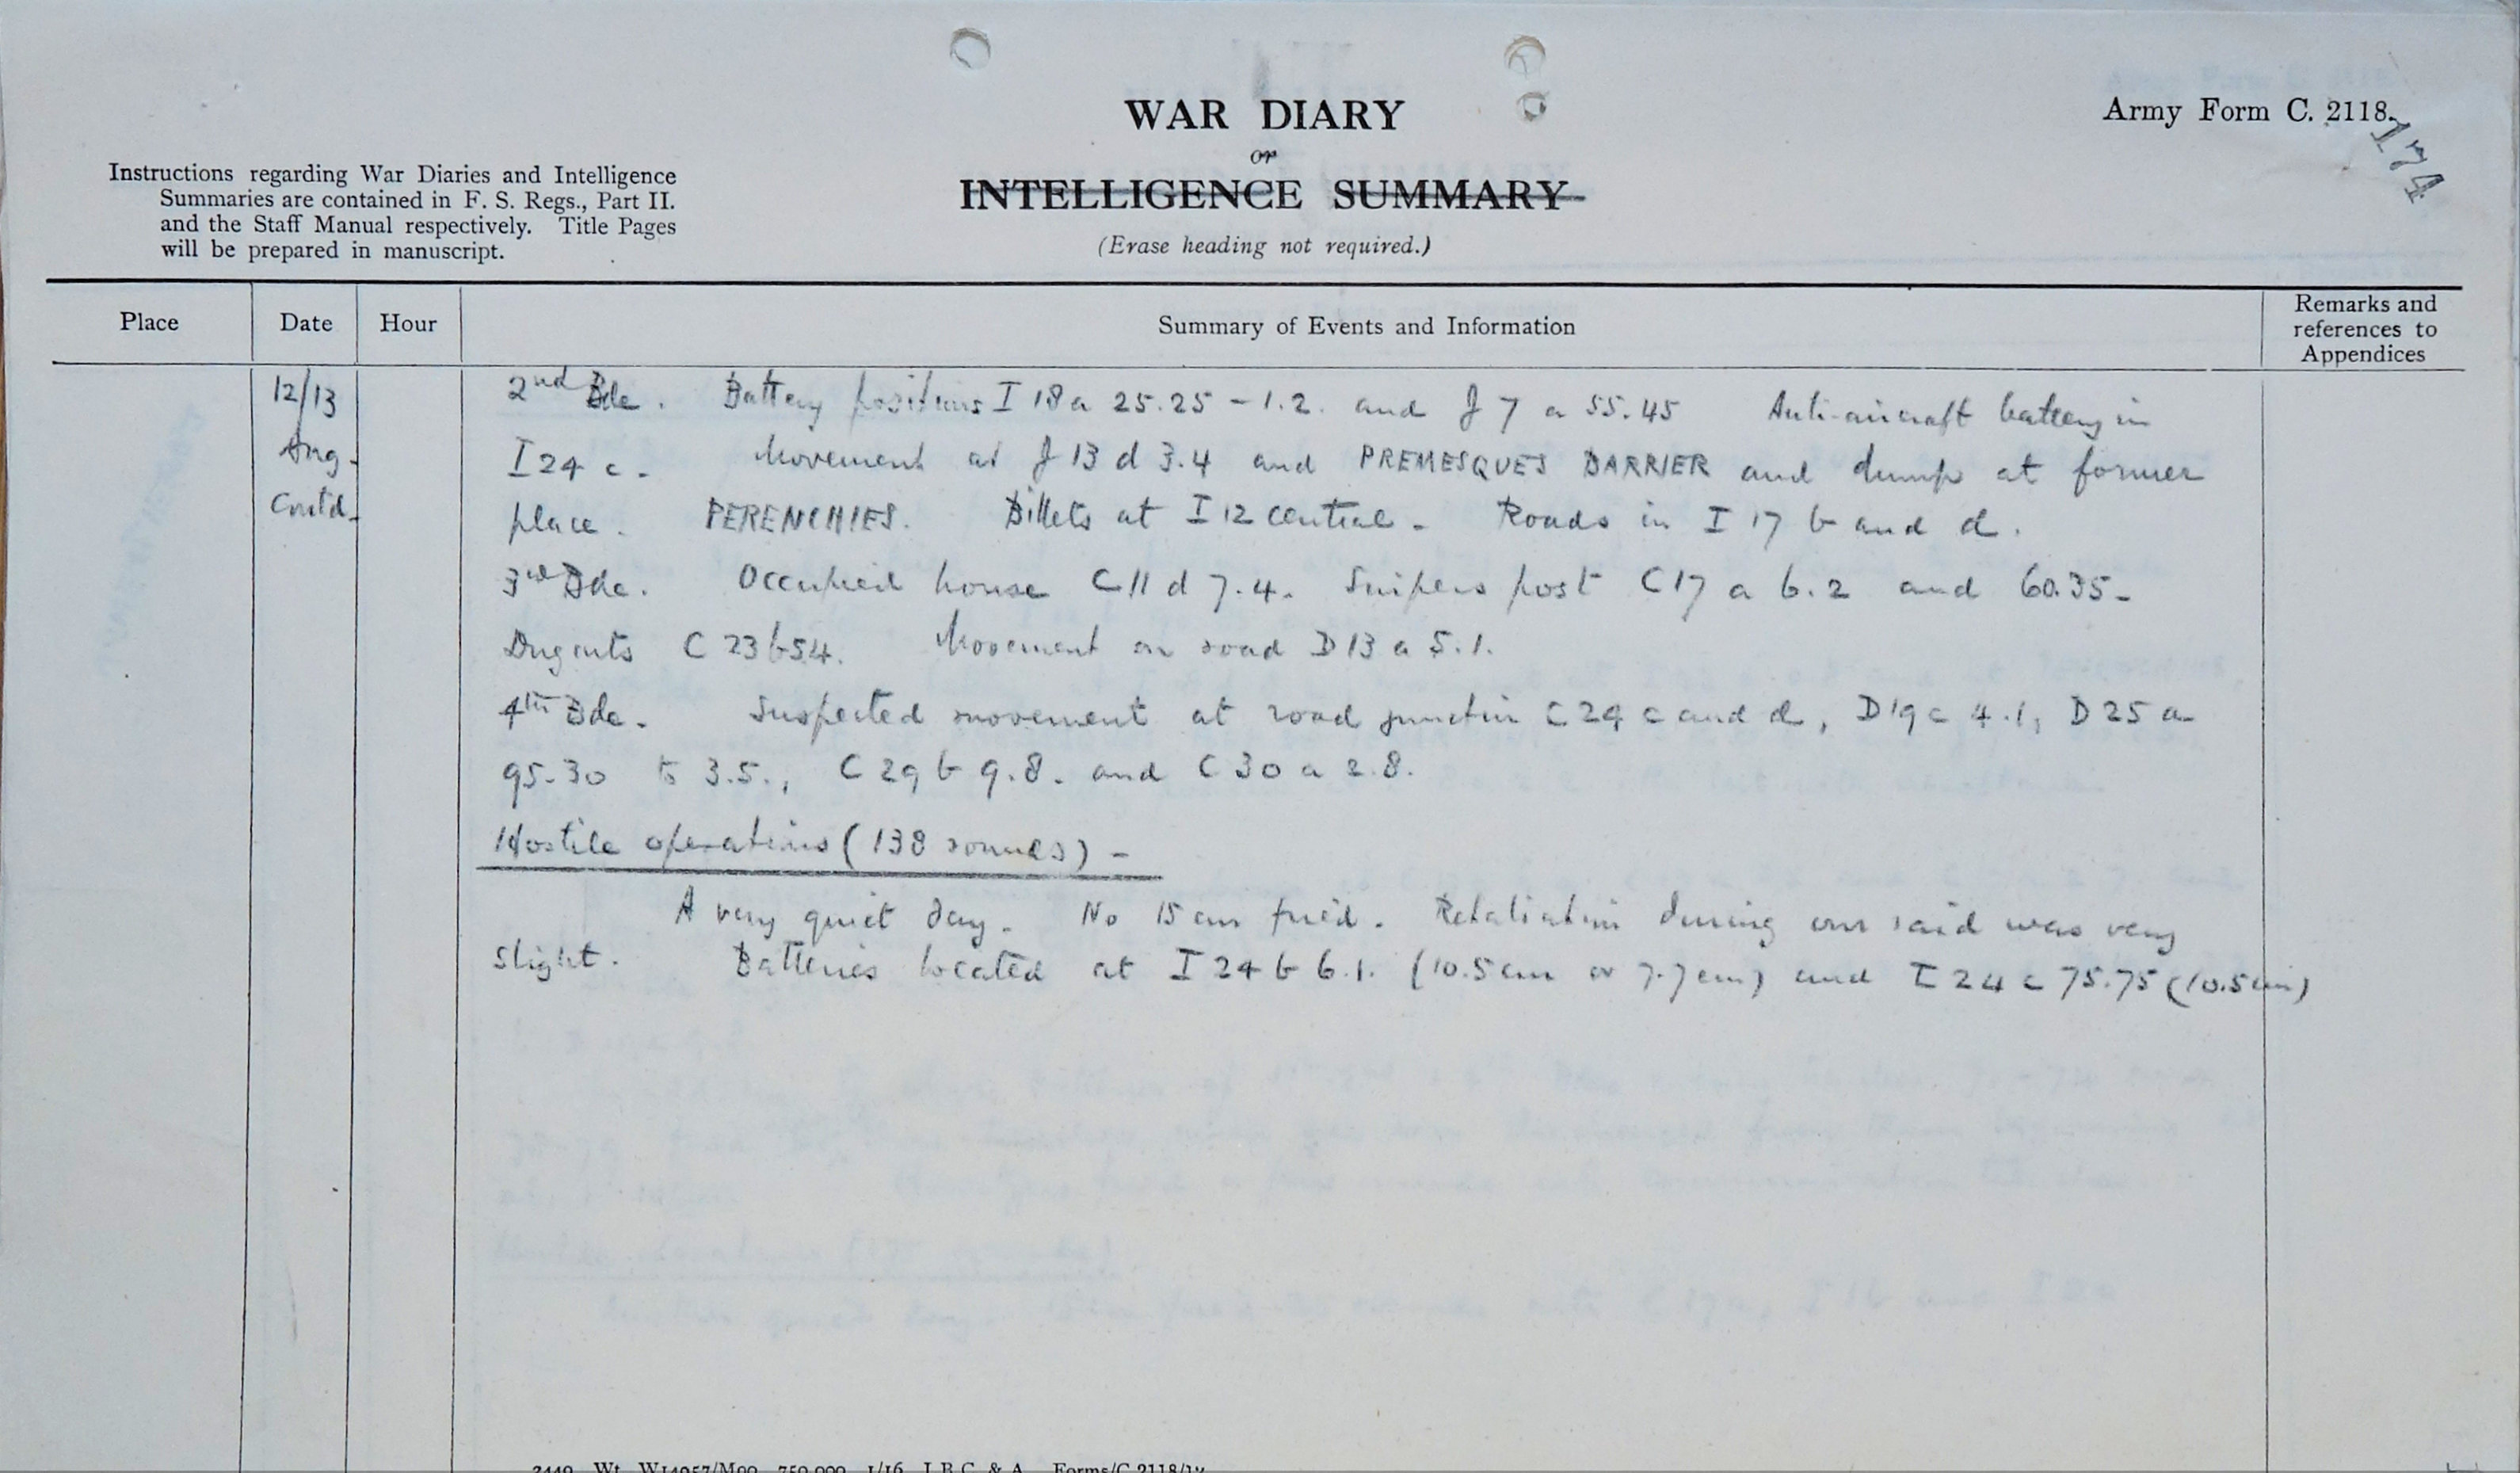 WAR DIARY
or
INTELLIGENCE SUMMARY
(Erase heading not required.)
Army Form C. 2118.
174
Instructions regarding War Diaries and Intelligence
Summaries are contained in F. S. Regs., Part II.
and the Staff Manual respectively. Title Pages
will be prepared in manuscript.
Place
Date
Hour
Summary of Events and Information
Remarks and
references to
Appendices
12/13
Aug.
Contd.
2nd Bde. Battery positions I 18 a 25.25 - 1.2. and J 7 a 55.45 Anti-aircraft battery in
I 24 c. Movement at J 13 d 3.4 and PREMESQUES BARRIER and dump at former
place. PERENCHIES. Billets at I 12 central. Roads in I 17 b and d.
3rd Bde. Occupied house C 11 d 7.4. Snipers post C 17 a 6.2 and 60.35.
Dugouts C 23 b 54. Movement on road D 13 a 5.1.
4th Bde. Suspected movement at road junction C 29 c and d, D 19 c 4.1, D 25 a
95.30 to 3.5., C 29 b 9.8. and C 30 a 2.8.
Hostile operations (138 rounds) -
A very quiet day. No 15 cm fired. Retaliation during our raid was very
slight. Batteries located at I 24 b 6.1. (10.5 cm or 7.7 cm) and I 24 c 75.75 (10.5 cm)